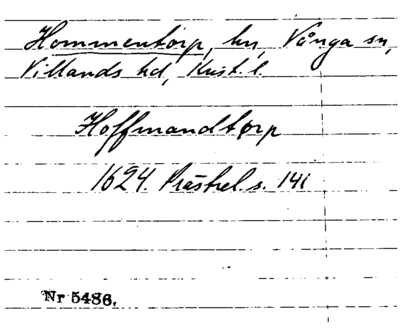 Hommentorp, hn, Vånga sn,
Villands hd, Krist. l.
Hoffmandtorp
1624. Prästrel. s. 141
Nr 5486.